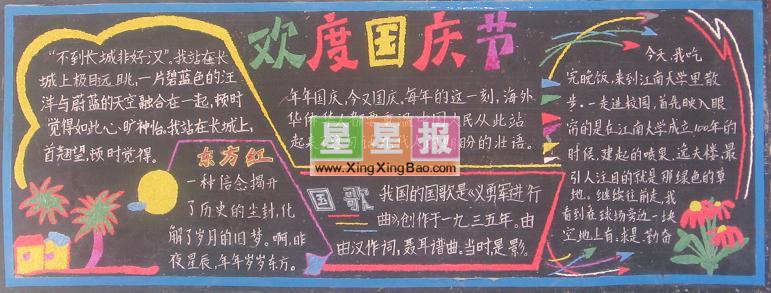 欢度国庆节
"不到长城非好汉"。我站在长
城上极目远眺,一片碧蓝色的汪
洋与蔚蓝的天空融合在一起,顿时
觉得如此心旷神怡。我站在长城上,
首翘望,顿时觉得。
年年国庆,今又国庆。每年的这一刻,海外
人民从此站
起来
的壮语。
星星报
www.XingXingBao.com
东方红
一种信念揭开
了历史的尘封,化
解了岁月的旧梦。啊,昨
夜星辰,年年岁岁东方。
国歌
我国的国歌是《义勇军进行
曲》创作于一九三五年。由
由汉作词,聂耳谱曲。当时是影。
今天,我吃
完晚饭,来到江南大学里散
步。一走进校园,首先映入眼
帘的是在江南大学成立100年的
时候,建起的喷泉、逸夫楼,最
引人注目的就是那绿色的草
地。继续往前走,我
看到在球场旁边一块
空地上有:求是、勤奋